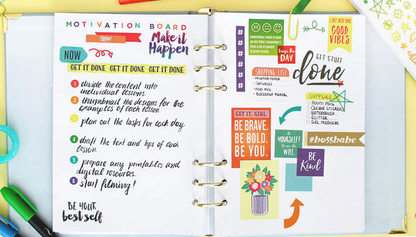 MOTIVATION BOARD
Make it
Happen
NOW
GET IT DONE GET IT DONE GET IT DONE
1 divide the content into
individual lessons.
2 thumbnail the designs for the
examples of each lesson
3 plan out the tasks for each day.
4 draft the text and tips of each
lesson.
5 prepare any printables and
digital resources.
6 start filming!
BE YOUR
best self
GOOD
VIBES
DAY
GET STUFF
done
SHOPPING LIST
SUPPLIES
GET IT, GIRL
BE BRAVE.
BE BOLD.
BE YOU.
BE
YOURSELF
#bossbabe
BE
Kind